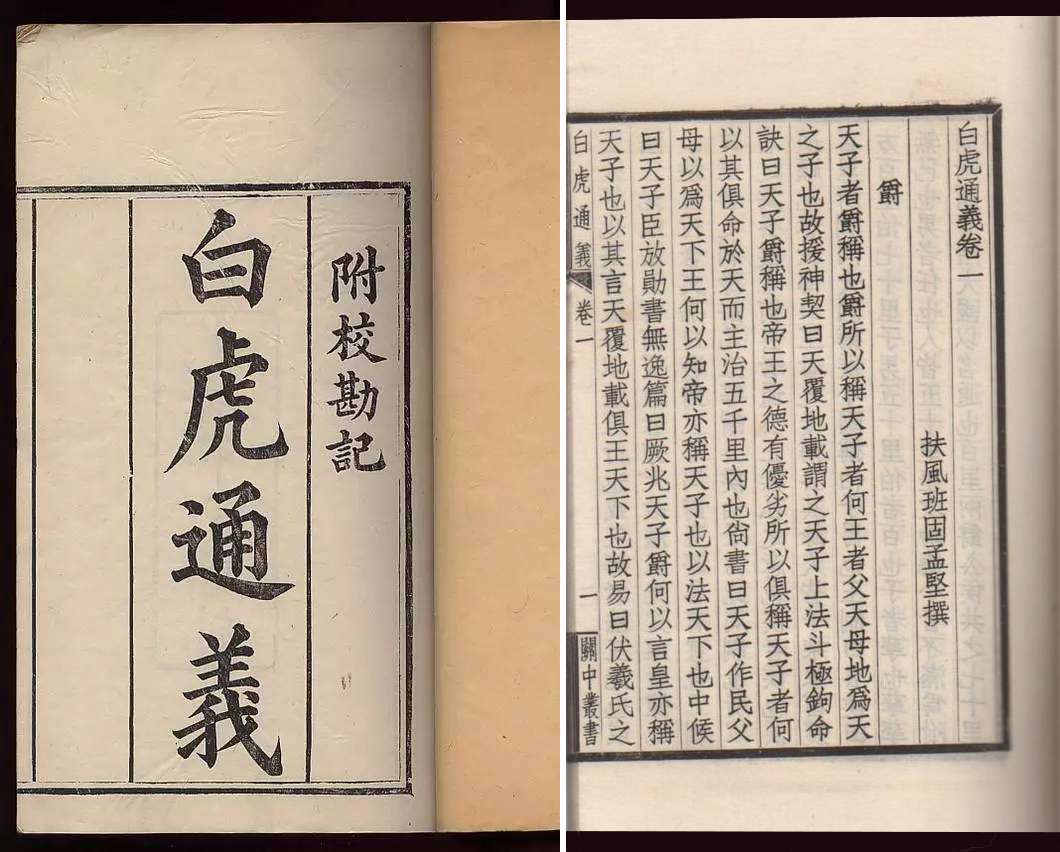 附校勘記
白虎通義
白虎通義卷一
扶風班固孟堅撰
爵
天子者爵稱也爵所以稱天子者何王者父天母地爲天
之子也故援神契曰天覆地載謂之天子上法斗極鉤命
訣曰天子爵稱也帝王之德有優劣所以俱稱天子者何
以其俱命於天而主治五千里內也尙書曰天子作民父
母以爲天下王何以知帝亦稱天子也以法天下也中候
曰天子臣放勛書無逸篇曰厥兆天子爵何以言皇亦稱
天子也以其言天覆地載俱王天下也故易曰伏羲氏之
白虎通義 卷一 一 關中叢書